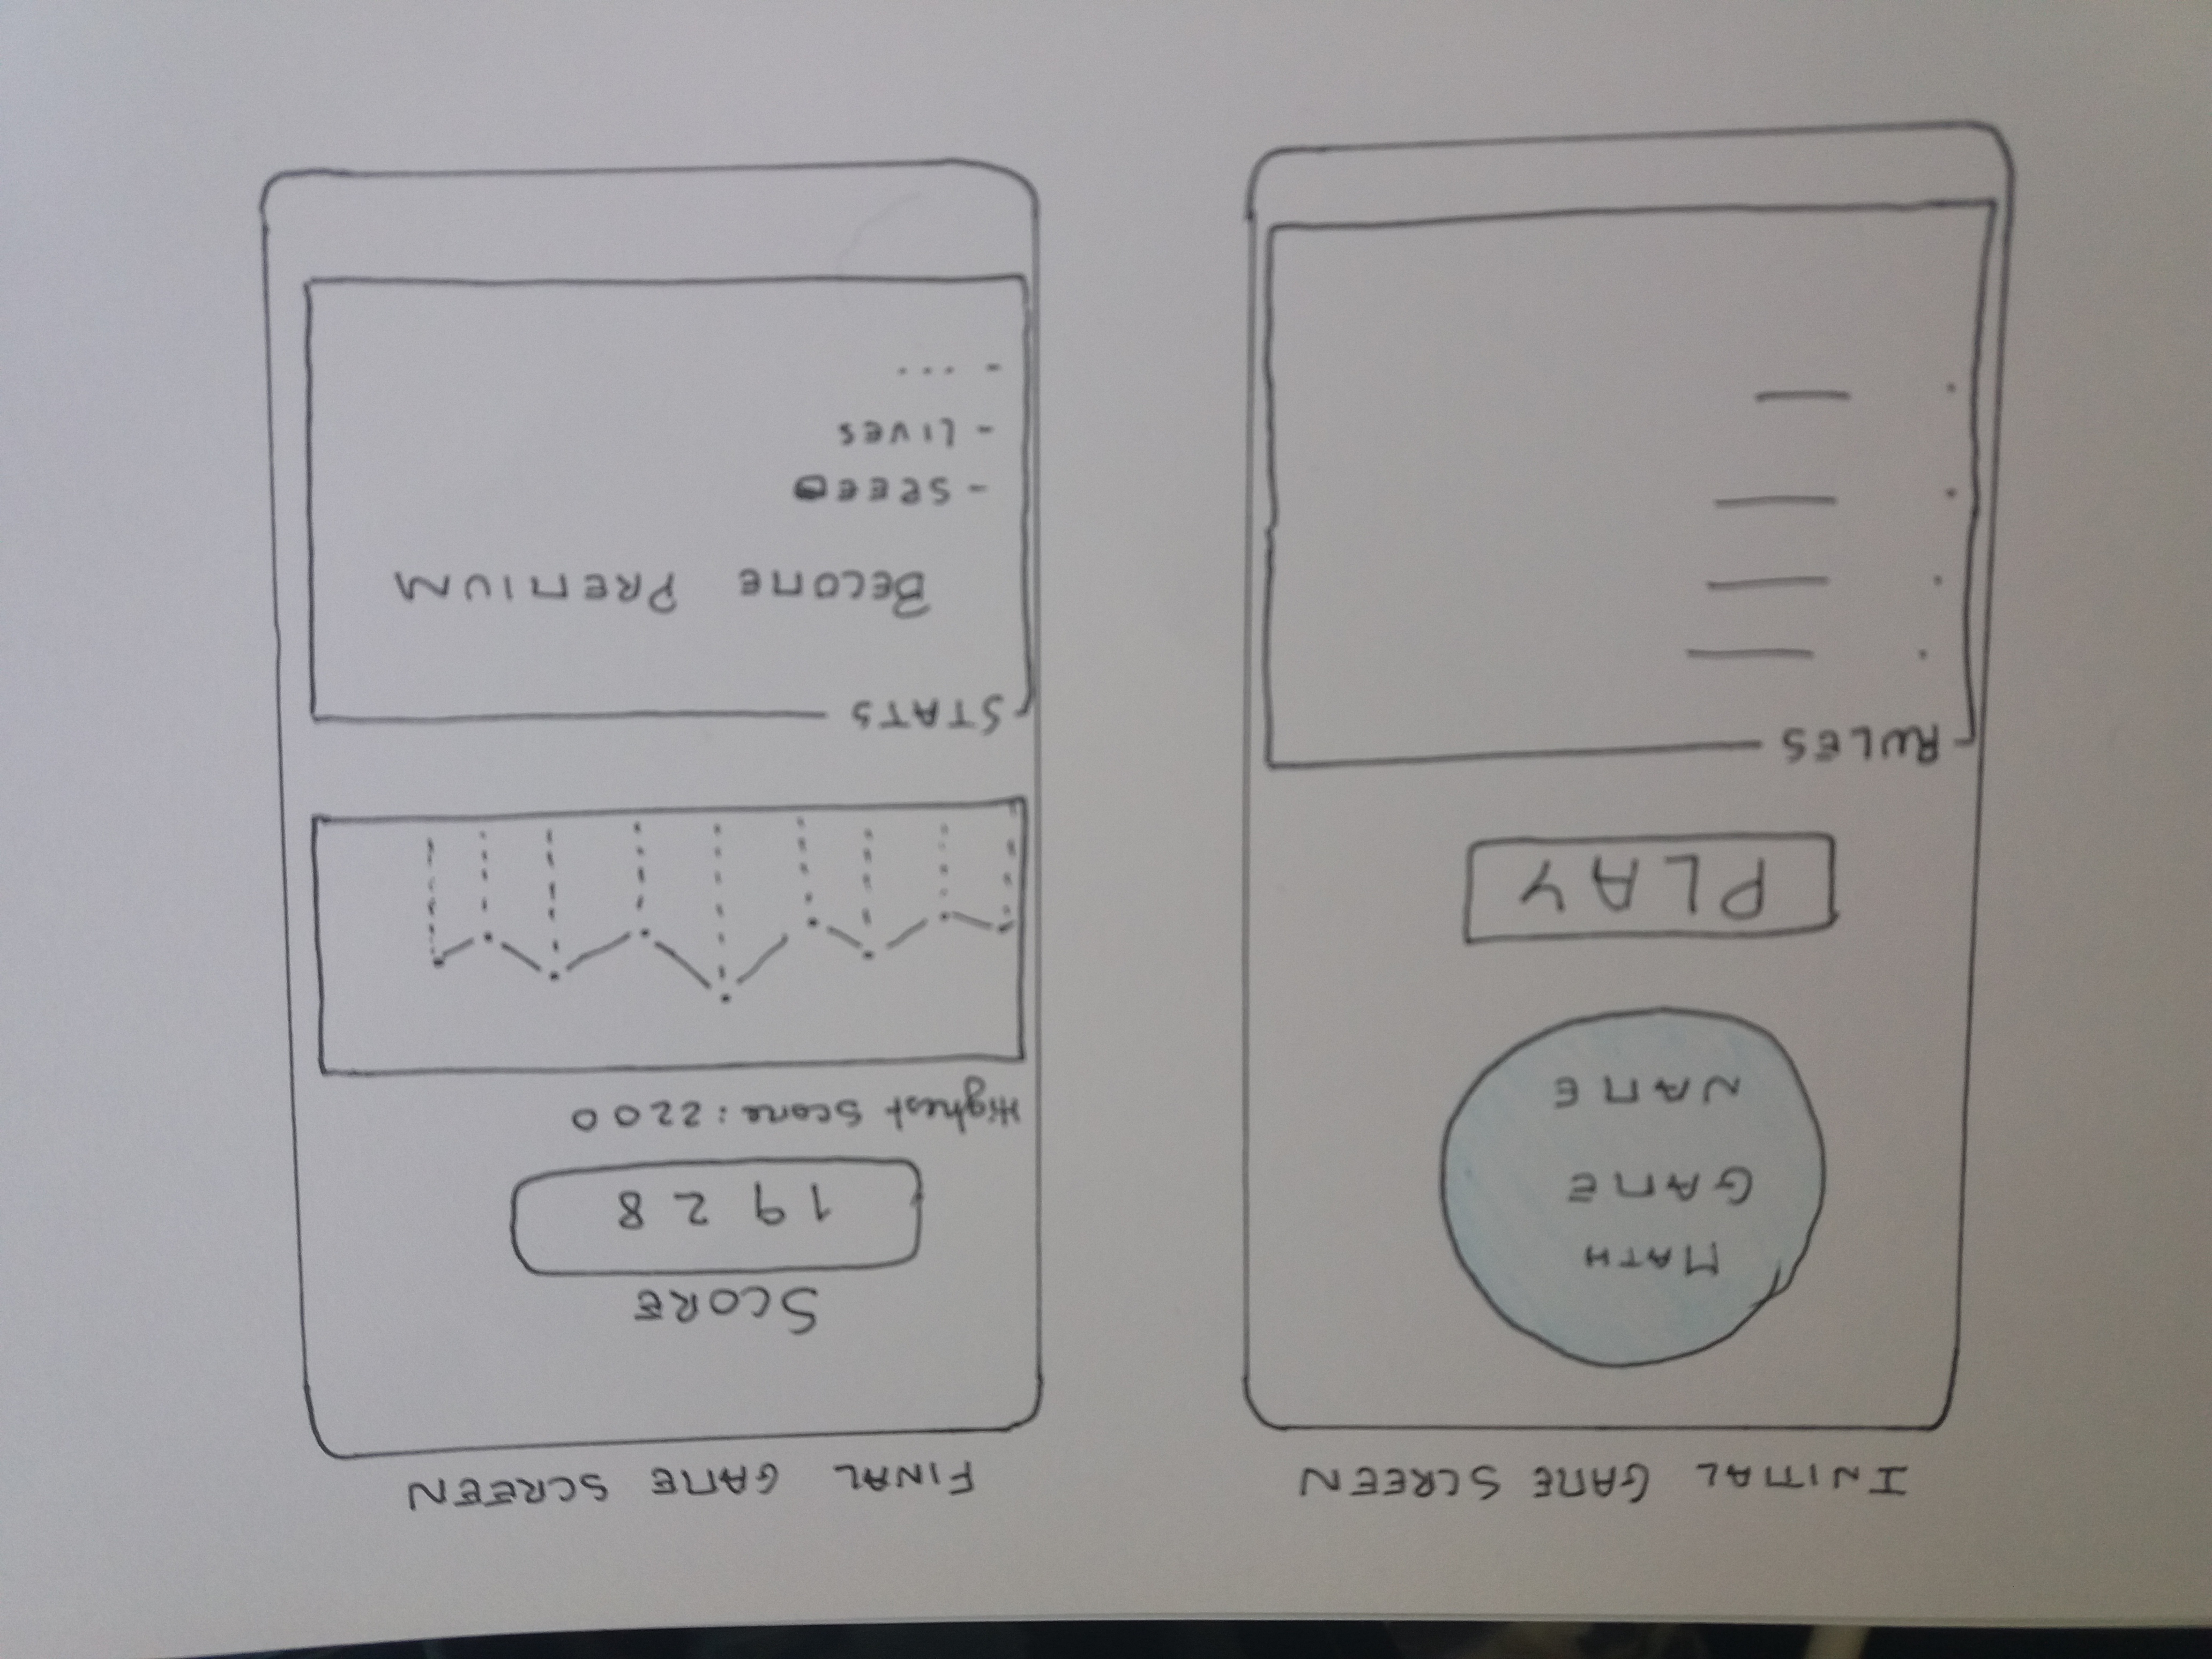 INITIAL GAME SCREEN
MATH
GAME
NAME
PLAY
RULES
FINAL GAME SCREEN
SCORE
1928
Highest Score: 2200
STATS
BECOME PREMIUM
- SPEED
- LIVES
- ...